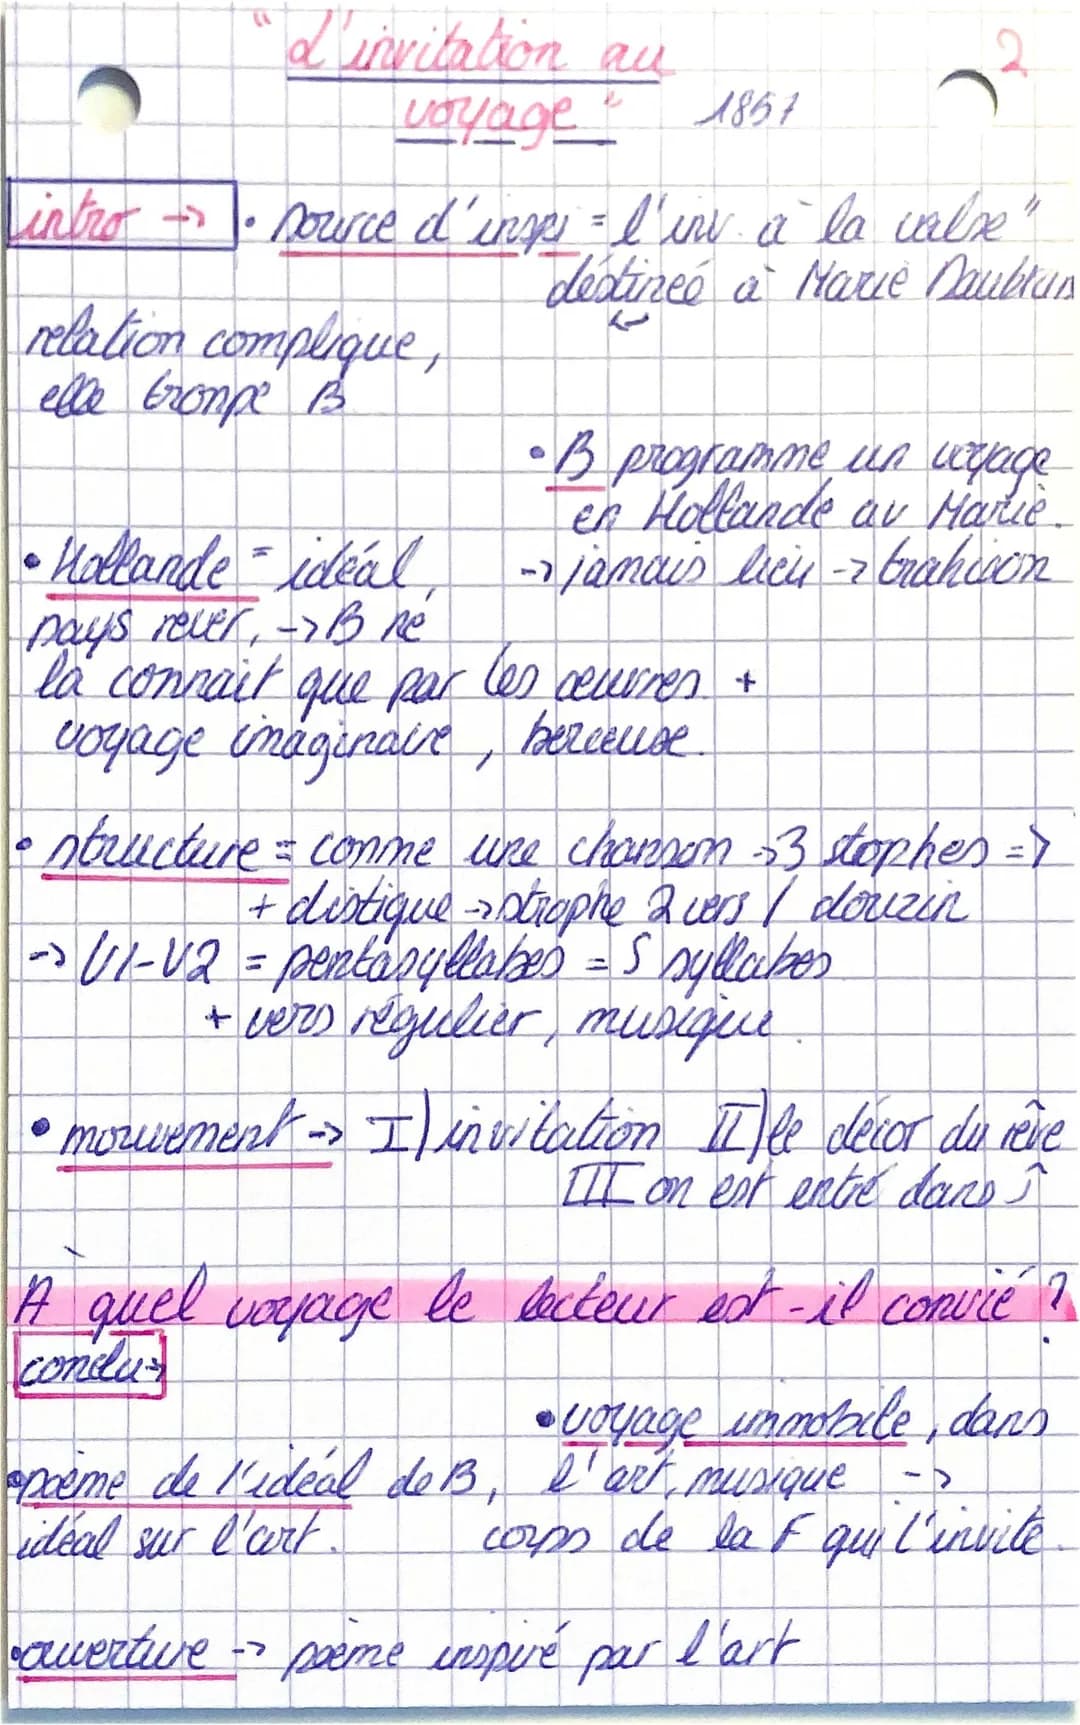 "L'invitation au
2
voyage" 1857
intro -> • source d'inspi = l'inv. à la valse"
déstineé à Marie Daubrun
relation complique,
elle trompe B
• B programme un voyage
en Hollande av Marie.
• Hollande = idéal, -> jamais lieu -> trahison
pays rever, -> B ne
la connait que par les œuvres +
voyage imaginaire, berceuse.
• structure = comme une chanson -> 3 stophes =>
+ distique -> strophe 2 vers / douzin
-> V1-V2 = pentasyllabes = 5 syllabes
+ vers régulier, musique.
• mouvement -> I) invitation II) le décor du rêve
III on est entré dans ↑
À quel voyage le lecteur est-il convié ?
conclu ->
• voyage immobile, dans
• poème de l'idéal de B, l'art, musique ->
idéal sur l'art. corps de la F qui l'invite.
• ouverture -> poème inspiré par l'art